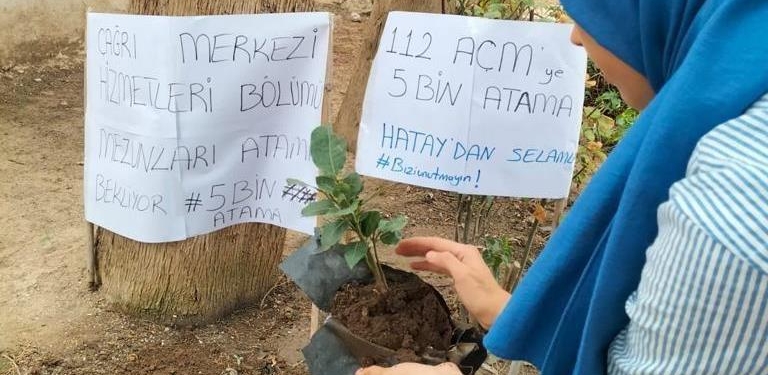 ÇAĞRI MERKEZİ
HİZMETLERİ BÖLÜMÜ
MEZUNLARI ATAMA
BEKLİYOR #5BİN
ATAMA
112 AÇM'ye
5 BİN ATAMA
HATAY'DAN SELAMLA
#Biziunutmayın!